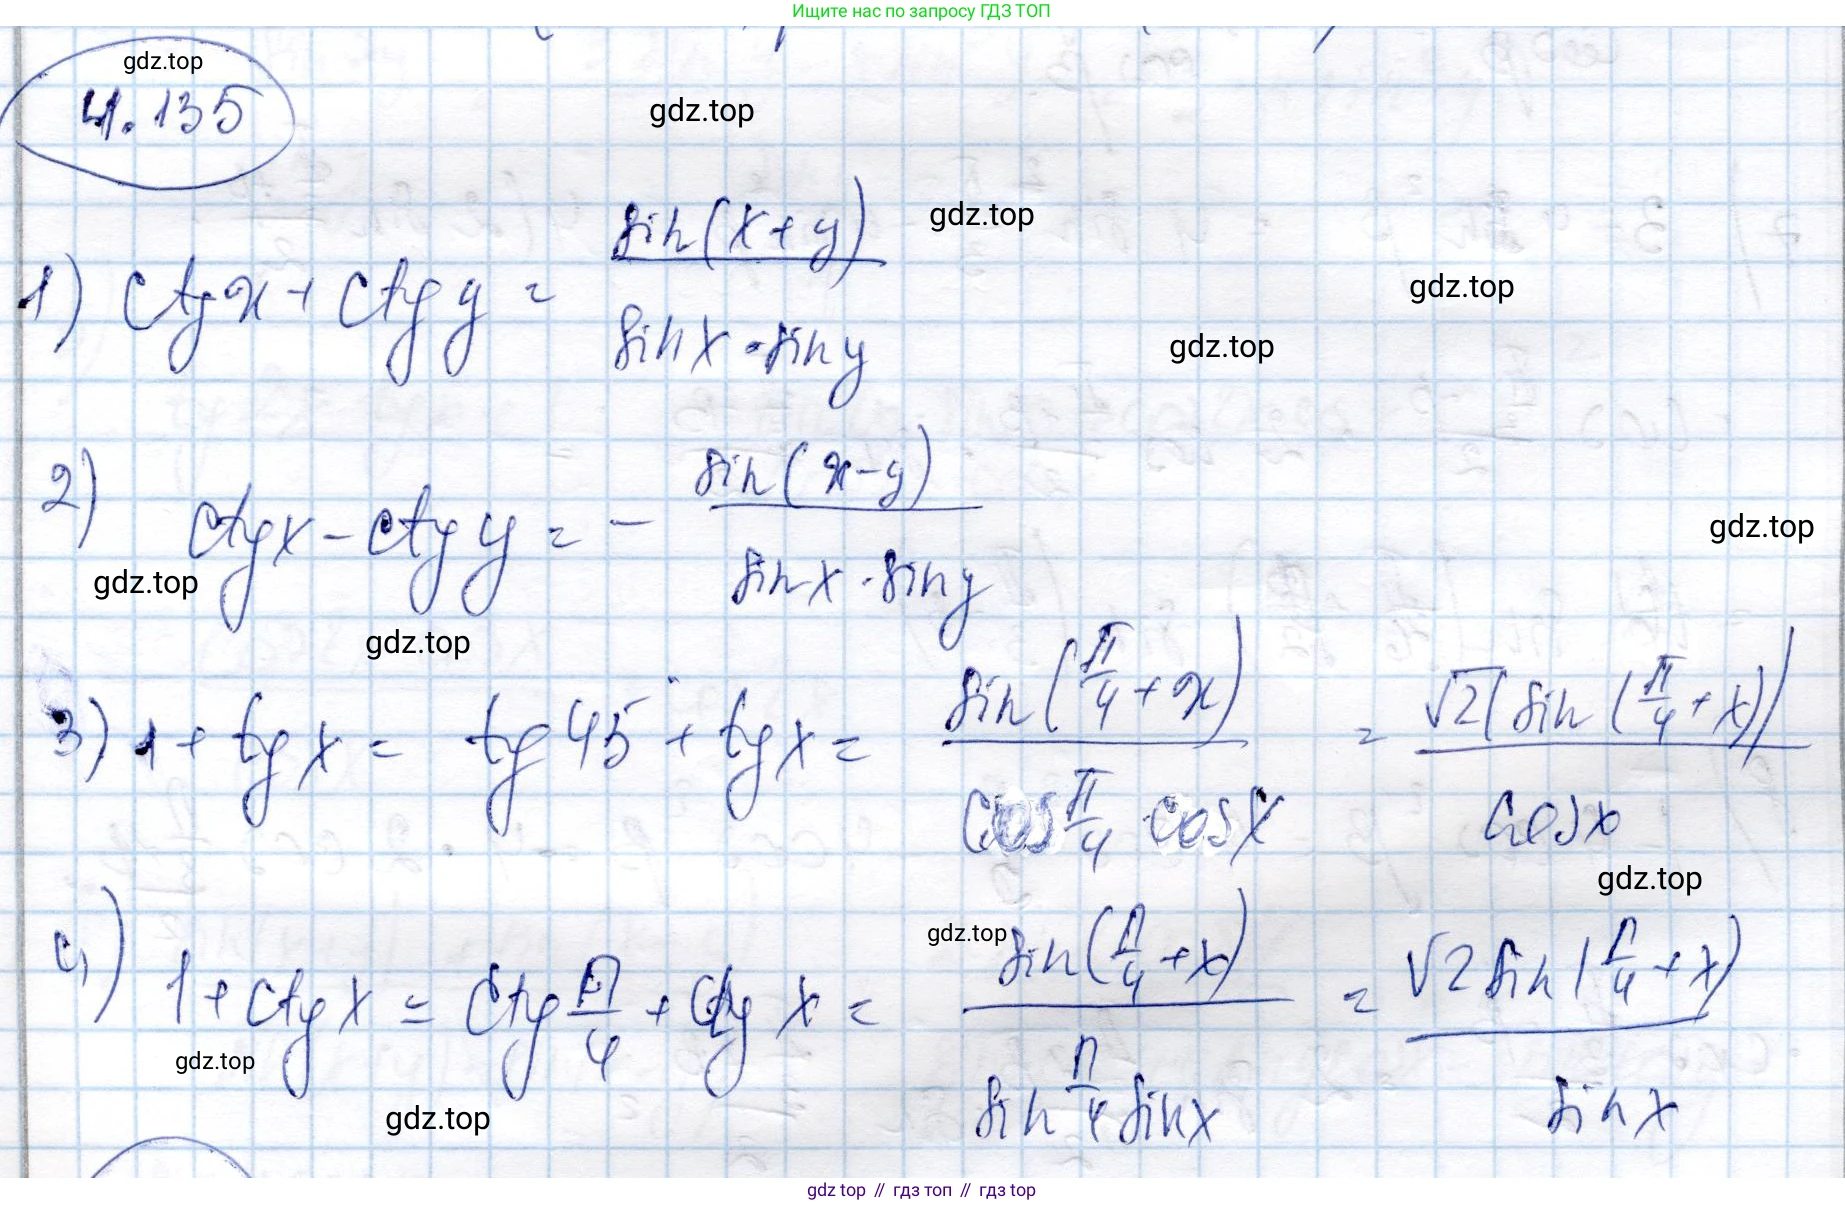 Ищите нас по запросу ГДЗ ТОП
gdz.top
4.135
gdz.top
1) ctg x + ctg y = sin(x+y) / sin x · sin y
gdz.top
gdz.top
gdz.top
2) ctg x - ctg y = - sin(x-y) / sin x · sin y
gdz.top
gdz.top
gdz.top
3) 1 + tg x = tg 45° + tg x = sin(π/4 + x) / cos π/4 cos x = √2(sin(π/4 + x)) / cos x
gdz.top
4) 1 + ctg x = ctg π/4 + ctg x = sin(π/4 + x) / sin π/4 sin x = √2 sin(π/4 + x) / sin x
gdz.top
gdz.top
gdz.top
gdz top // гдз топ // гдз top